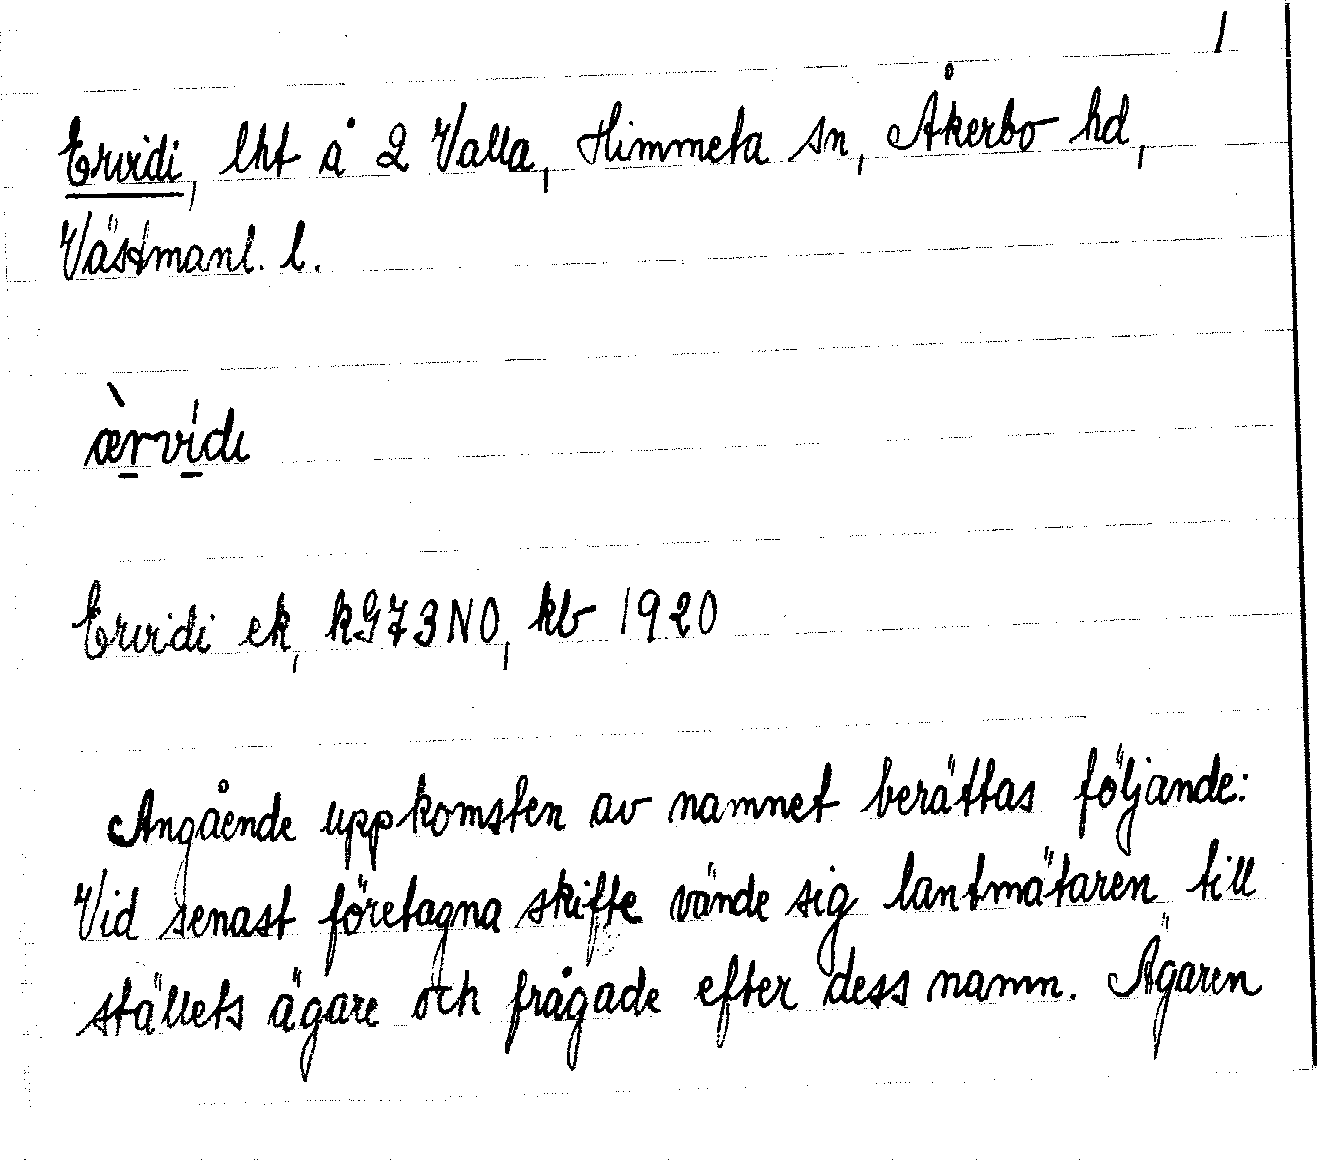 1
Ervidi, lht å 2 Valla, Himmeta sn, Åkerbo hd,
Västmanl. l.
ærvidɩ
Ervidi ek, kG73NO, kb 1920
Angående uppkomsten av namnet berättas följande:
Vid senast företagna skifte vände sig lantmätaren till
ställets ägare och frågade efter dess namn. Ägaren